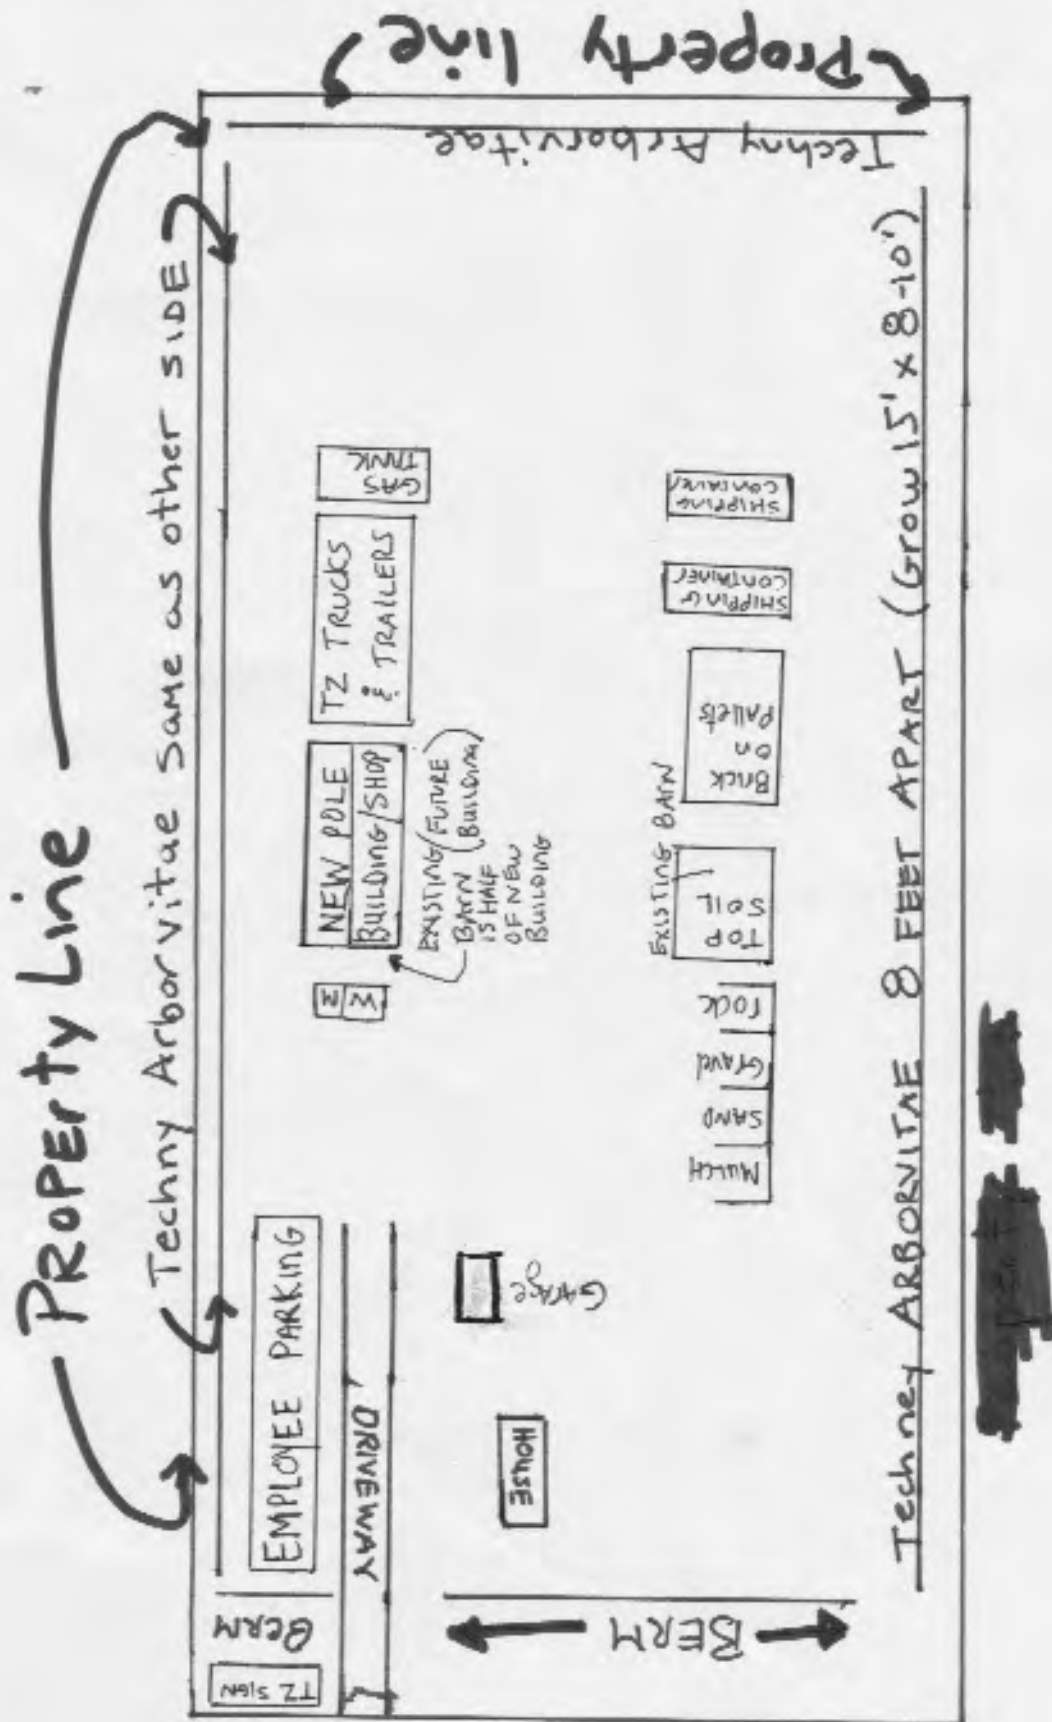 Property Line
Property line
Techny Arborvitae same as other SIDE
Techny Arborvitae
GAS
TANK
TZ TRUCKS
& TRAILERS
NEW POLE
BUILDING/SHOP
EXISTING
BARN
IS HALF
OF NEW
BUILDING
(FUTURE
Building)
M
W
EMPLOYEE PARKING
DRIVEWAY
BERM
TZ SIGN
SHIPPING
CONTAINER
SHIPPING
CONTAINER
Brick
on
Pallets
EXISTING BARN
TOP
SOIL
rock
Gravel
SAND
MULCH
GARAge
HOUSE
BERM
Techney ARBORVITAE 8 FEET APART (Grow 15' x 8-10')